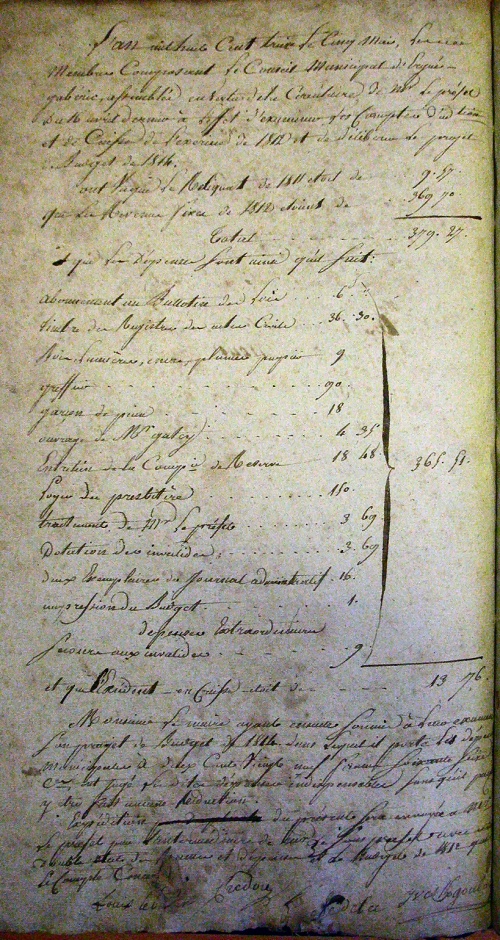 L'an mil huit Cent treize le Cinq Mai, les
Membres Composant le Conseil Municipal d'Ergué-
gabéric, assemblés en vertu de la Circulaire de Mr le préfet
a l'effet d'examiner les Comptes
et de Caisse de l'exercice de 1812 et de délibérer le projet
de Budget de 1814.
ont Vu que le Reliquat de 1811 etoit de 9. 57
que les Revenus fixes de 1812 etoient de 369 70
Total 379. 27.
et que les depenses sont ainsi qu'il suit:
abonnement au Bulletin des Lois 6
timbre des Registres des actes Civils 36. 30.
Bois, Lumières, encre, plumes papier 9
greffier 90.
garçon de peine 18
ouvrage de Mr 4 35
Entretien de la Compie de Reserve 18 48
Loyer du presbitère 150.
traitement de Mr le préfet 3 69
Dotation des invalides: 3. 69
deux Exemplaires du Journal administratif 16.
impression du Budget 1.
365. 51.
depenses Extraordinaires
secours aux invalides 9
et que l'Excédent en Caisse etoit de 13 76.
Monsieur le maire ayant ensuite soumis à leur examen
son projet de Budget de 1814 dans lequel il porte les depenses
municipales à deux Cents Vingt neuf francs soixante
Ces ont jugé les dites depenses indispensables sans qu'il
y être fait aucune Réduction.
Expédition du présent sera envoyée à Mr
le préfet par l'intermédiaire de
double état de Recettes et depenses et de Budget de 1812
le Compte
Credou